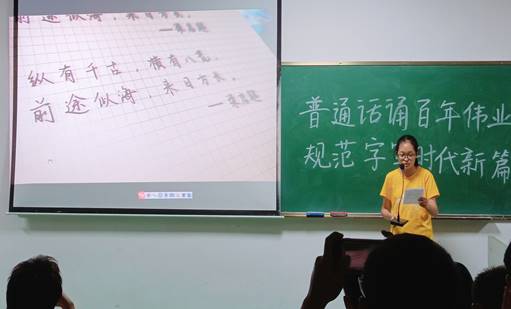 前途似海，来日方长。
—梁启超
纵有千古，横有八荒，
前途似海，来日方长。
—梁启超
普通话诵百年伟业
规范字写时代新篇